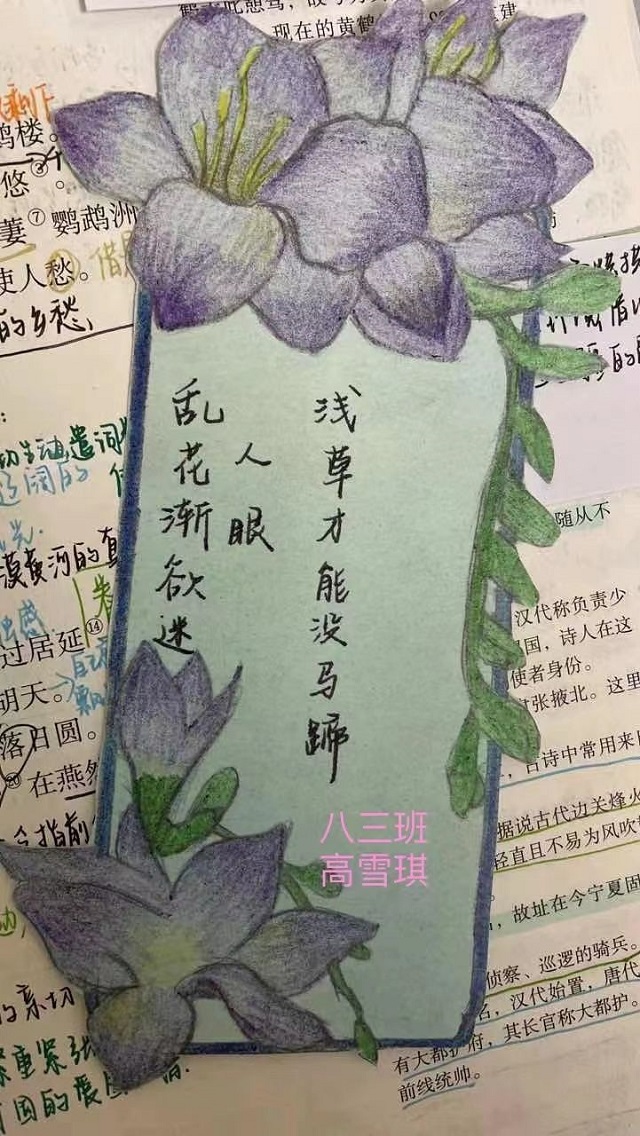 现在的黄鹤
楼。
悠。
萋⑦鹦鹉洲
使人愁。
的乡愁,
乱花渐欲迷
人眼
浅草才能没马蹄
八三班
高雪琪
过居延⑭
胡天。
落日圆。
在燕然
随从不
汉代称负责少
国，诗人在这
使者身份。
张掖北。这里
，古诗中常用来
据说古代边关烽火
径直且不易为风吹
，故址在今宁夏固
侦察、巡逻的骑兵。
，汉代始置，唐代
有大都护府，其长官称大都护。
前线统帅。